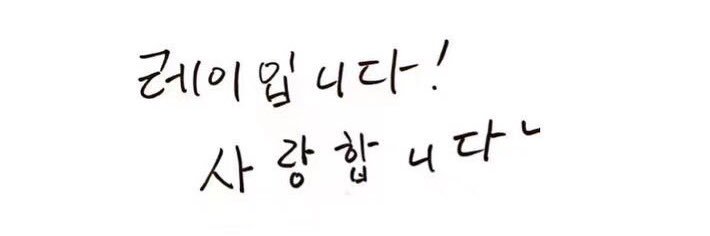 레이입니다!
사랑합니다~